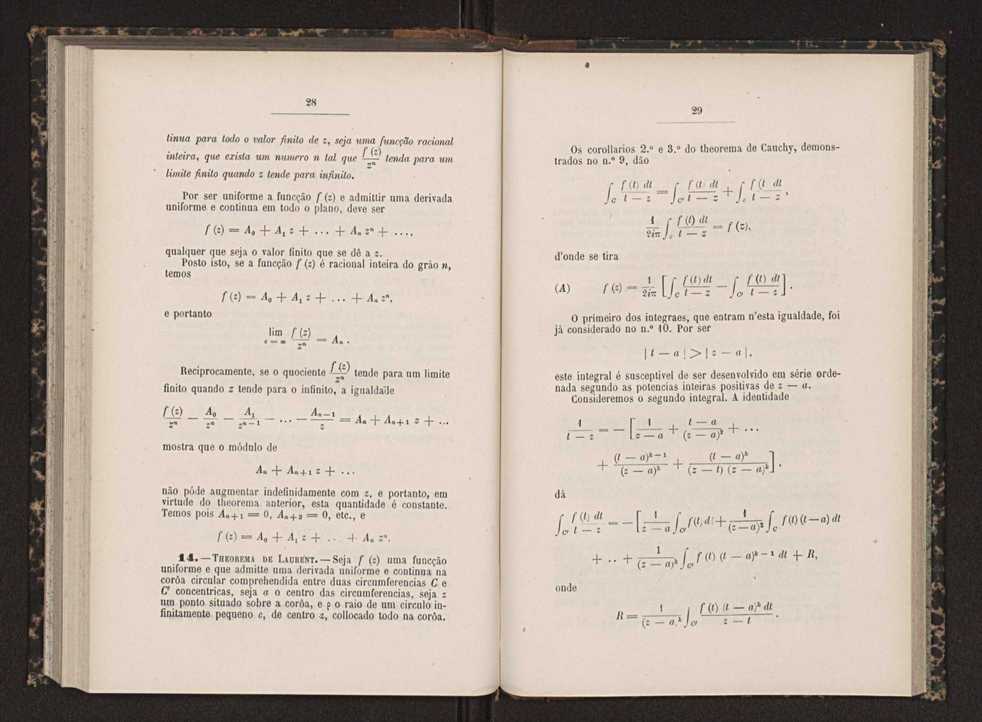 28
tinua para todo o valor finito de z, seja uma funcção racional
inteira, que exista um numero n tal que f (z) / zⁿ tenda para um
limite finito quando z tende para infinito.
Por ser uniforme a funcção f (z) e admittir uma derivada
uniforme e continua em todo o plano, deve ser
f (z) = A₀ + A₁ z + ... + Aₙ zⁿ + ...,
qualquer que seja o valor finito que se dê a z.
Posto isto, se a funcção f (z) é racional inteira do gráo n,
temos
f (z) = A₀ + A₁ z + ... + Aₙ zⁿ,
e portanto
lim z = ∞ f (z) / zⁿ = Aₙ .
Reciprocamente, se o quociente f (z) / zⁿ tende para um limite
finito quando z tende para o infinito, a igualdade
f (z) / zⁿ — A₀ / zⁿ — A₁ / zⁿ⁻¹ — ... — Aₙ₋₁ / z = Aₙ + Aₙ₊₁ z + ...
mostra que o módulo de
Aₙ + Aₙ₊₁ z + ...
não póde augmentar indefinidamente com z, e portanto, em
virtude do theorema anterior, esta quantidade é constante.
Temos pois Aₙ₊₁ = 0, Aₙ₊₂ = 0, etc., e
f (z) = A₀ + A₁ z + ... + Aₙ zⁿ.
14. — THEOREMA DE LAURENT. — Seja f (z) uma funcção
uniforme e que admitte uma derivada uniforme e continua na
corôa circular comprehendida entre duas circumferencias C e
C' concentricas, seja a o centro das circumferencias, seja z
um ponto situado sobre a corôa, e ρ o raio de um circulo in-
finitamente pequeno c, de centro z, collocado todo na corôa.
29
Os corollarios 2.º e 3.º do theorema de Cauchy, demons-
trados no n.º 9, dão
∫C f (t) dt / t — z = ∫C' f (t) dt / t — z + ∫c f (t) dt / t — z ,
1 / 2iπ ∫c f (t) dt / t — z = f (z),
d'onde se tira
(A) f (z) = 1 / 2iπ [ ∫C f (t) dt / t — z — ∫C' f (t) dt / t — z ] .
O primeiro dos integraes, que entram n'esta igualdade, foi
já considerado no n.º 10. Por ser
| t — a | > | z — a |,
este integral é susceptivel de ser desenvolvido em série orde-
nada segundo as potencias inteiras positivas de z — a.
Consideremos o segundo integral. A identidade
1 / t — z = — [ 1 / z — a + t — a / (z — a)² + ...
+ (t — a)ᵏ⁻¹ / (z — a)ᵏ + (t — a)ᵏ / (z — t) (z — a)ᵏ ] ,
dá
∫C' f (t) dt / t — z = — [ 1 / z — a ∫C' f(t) dt + 1 / (z — a)² ∫C' f(t) (t — a) dt
+ ... + 1 / (z — a)ᵏ ∫C' f (t) (t — a)ᵏ⁻¹ dt + R,
onde
R = 1 / (z — a)ᵏ ∫C' f (t) (t — a)ᵏ dt / z — t .